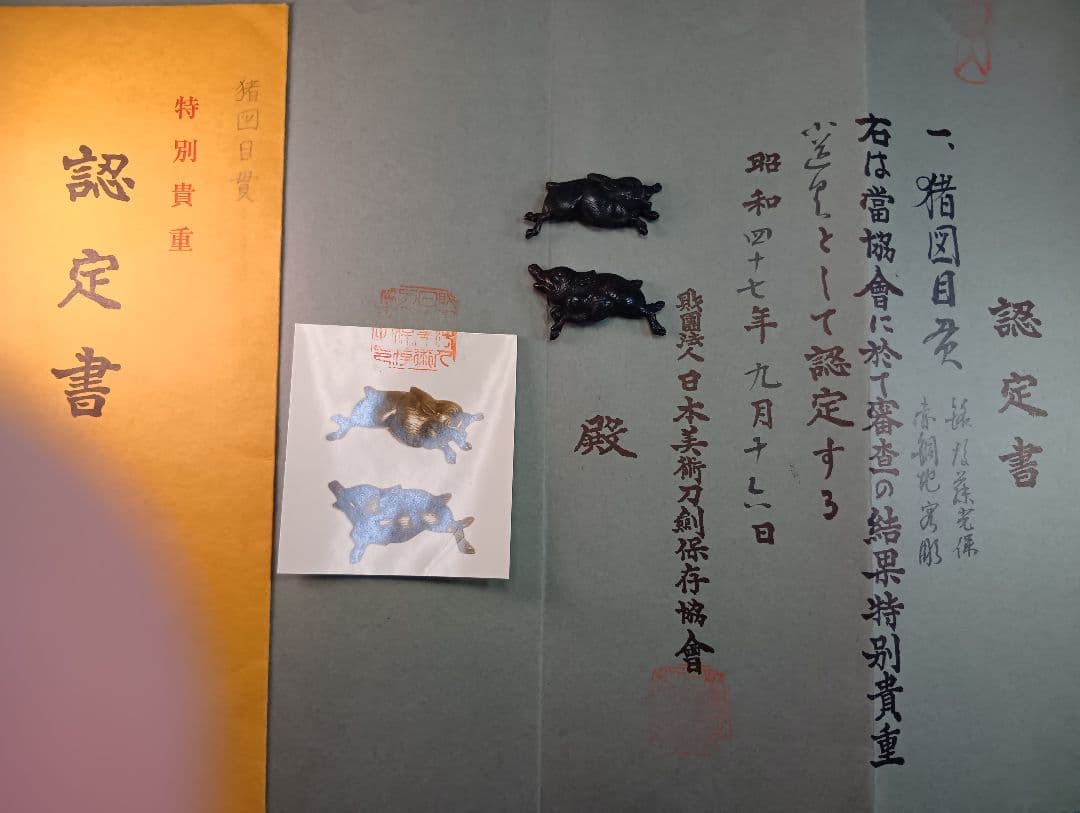 認定書
一、猪図目貫
赤銅地容彫
右は當協會に於て審査の結果特別貴重
小道具として認定する
昭和四十七年九月十六日
財團法人日本美術刀劍保存協會
殿
猪図目貫
特別貴重
認定書